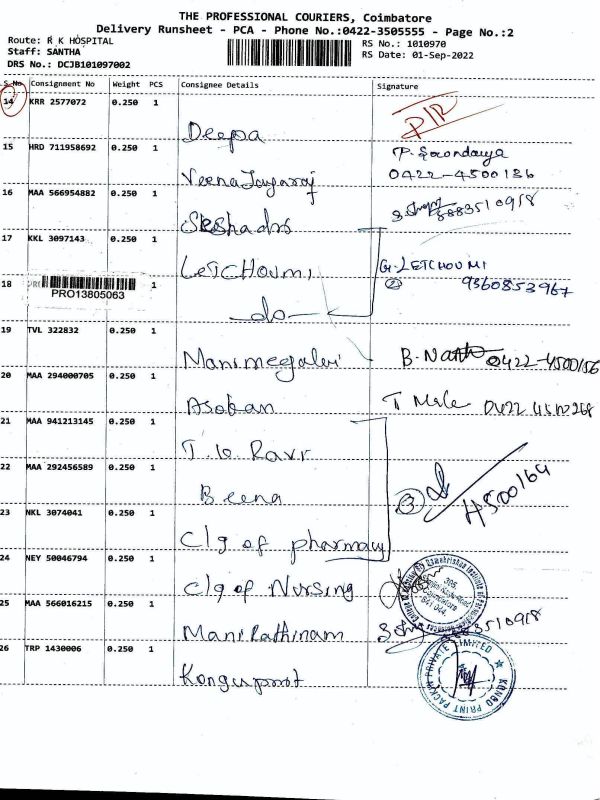 THE PROFESSIONAL COURIERS, Coimbatore
Delivery Runsheet - PCA - Phone No.:0422-3505555 - Page No.:2
Route: R K HOSPITAL
Staff: SANTHA
DRS No.: DCJB101097002
RS No.: 1010970
RS Date: 01-Sep-2022
S.No. Consignment No Weight PCS Consignee Details Signature
14 KRR 2577072 0.250 1 Deepa
15 HRD 711958692 0.250 1 Veena Jayaraj 0422-4500136
16 MAA 566954882 0.250 1 Seshadri 8883510918
17 KKL 3097143 0.250 1 LETCHOUMI G. LETCHOUMI
18 PRO13805063 1 -do- 2 9360853967
19 TVL 322832 0.250 1 Manimegalai 0422-4500156
20 MAA 294000705 0.250 1 Asokan
21 MAA 941213145 0.250 1 Ravi
22 MAA 292456589 0.250 1 Beena 3 4500164
23 NKL 3074041 0.250 1 Clg of pharmacy
24 NEY 50046794 0.250 1 Clg of Nursing
25 MAA 566016215 0.250 1 Mani Rathinam 8883510918
26 TRP 1430006 1 Konguprint
KONGO PRINT PACKIN PRIVATE LIMITED